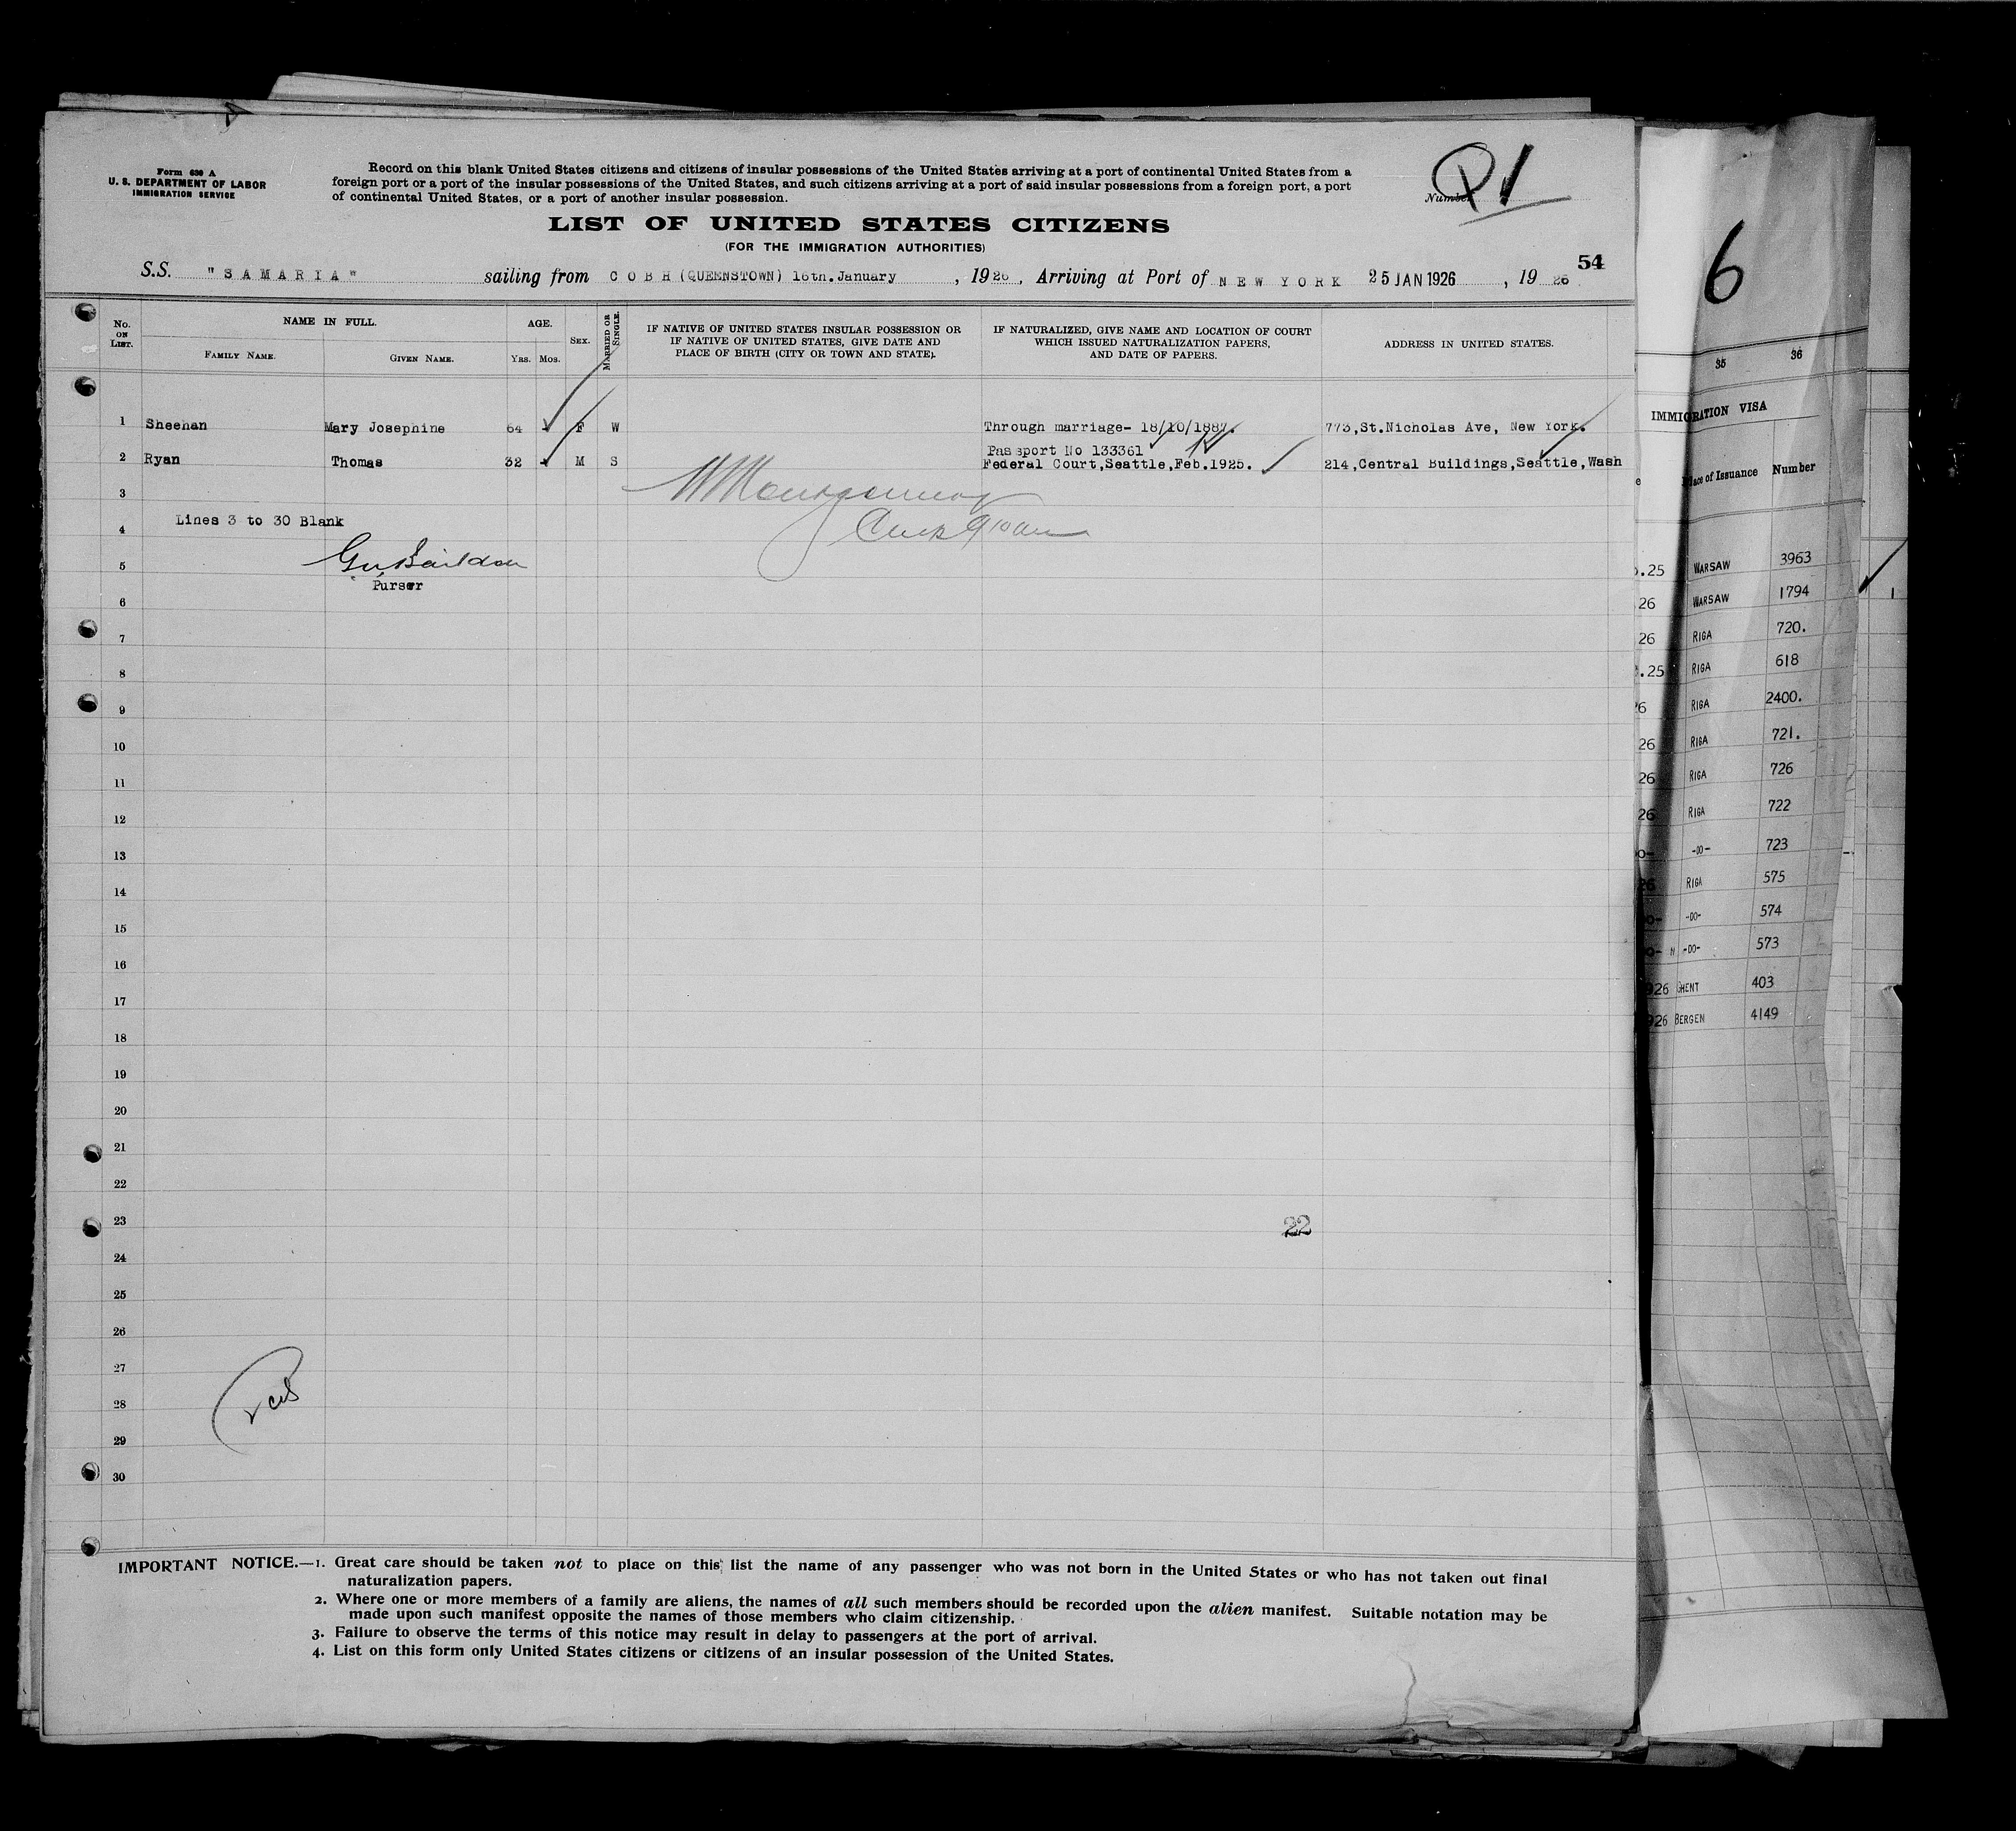 Form 630 A
U. S. DEPARTMENT OF LABOR
IMMIGRATION SERVICE
Record on this blank United States citizens and citizens of insular possessions of the United States arriving at a port of continental United States from a
foreign port or a port of the insular possessions of the United States, and such citizens arriving at a port of said insular possessions from a foreign port, a port
of continental United States, or a port of another insular possession.
Number
LIST OF UNITED STATES CITIZENS
(FOR THE IMMIGRATION AUTHORITIES)
54
S.S. "SAMARIA" sailing from COBH (QUEENSTOWN) 16th. January, 1926, Arriving at Port of NEW YORK 25 JAN 1926, 19 26
No. ON LIST.
NAME IN FULL.
FAMILY NAME. GIVEN NAME.
AGE.
YRS. MOS.
SEX.
MARRIED OR SINGLE.
IF NATIVE OF UNITED STATES INSULAR POSSESSION OR
IF NATIVE OF UNITED STATES, GIVE DATE AND
PLACE OF BIRTH (CITY OR TOWN AND STATE).
IF NATURALIZED, GIVE NAME AND LOCATION OF COURT
WHICH ISSUED NATURALIZATION PAPERS,
AND DATE OF PAPERS.
ADDRESS IN UNITED STATES.
1 Sheehan Mary Josephine 64 F W Through marriage- 18/10/1887. 773,St.Nicholas Ave, New York.
Passport No 133361
2 Ryan Thomas 32 M S Federal Court,Seattle,Feb.1925. 214,Central Buildings,Seattle,Wash
3
Lines 3 to 30 Blank
4
5
Purser
6
7
8
9
10
11
12
13
14
15
16
17
18
19
20
21
22
23 22
24
25
26
27
28
29
30
IMPORTANT NOTICE.—1. Great care should be taken not to place on this list the name of any passenger who was not born in the United States or who has not taken out final
naturalization papers.
2. Where one or more members of a family are aliens, the names of all such members should be recorded upon the alien manifest. Suitable notation may be
made upon such manifest opposite the names of those members who claim citizenship.
3. Failure to observe the terms of this notice may result in delay to passengers at the port of arrival.
4. List on this form only United States citizens or citizens of an insular possession of the United States.
6
35 36
IMMIGRATION VISA
Place of Issuance Number
.25 WARSAW 3963
26 WARSAW 1794
26 RIGA 720.
.25 RIGA 618
26 RIGA 2400.
26 RIGA 721.
26 RIGA 726
26 RIGA 722
-DO- 723
26 RIGA 575
-DO- 574
-DO- 573
926 GHENT 403
926 BERGEN 4149